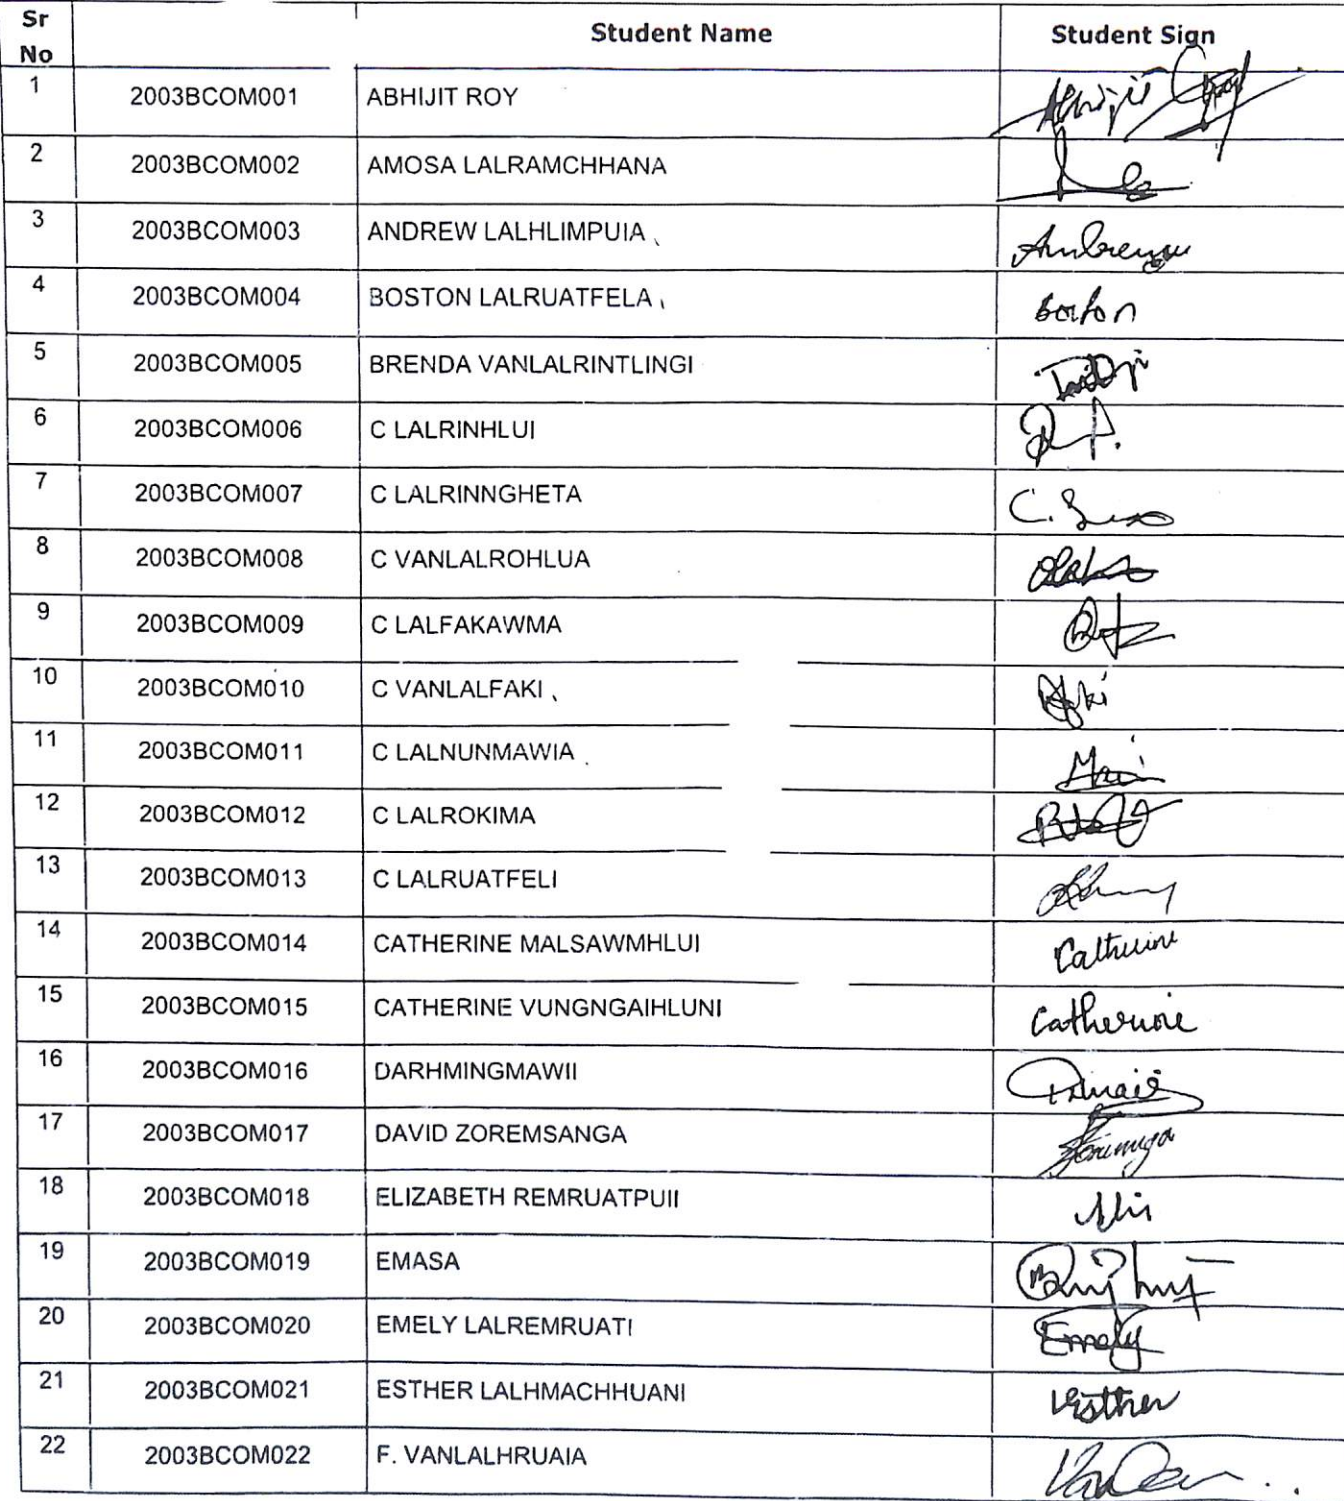 Sr No Student Name Student Sign
1 2003BCOM001 ABHIJIT ROY Abhijit Roy
2 2003BCOM002 AMOSA LALRAMCHHANA
3 2003BCOM003 ANDREW LALHLIMPUIA
4 2003BCOM004 BOSTON LALRUATFELA Boston
5 2003BCOM005 BRENDA VANLALRINTLINGI
6 2003BCOM006 C LALRINHLUI
7 2003BCOM007 C LALRINNGHETA
8 2003BCOM008 C VANLALROHLUA
9 2003BCOM009 C LALFAKAWMA
10 2003BCOM010 C VANLALFAKI
11 2003BCOM011 C LALNUNMAWIA
12 2003BCOM012 C LALROKIMA
13 2003BCOM013 C LALRUATFELI
14 2003BCOM014 CATHERINE MALSAWMHLUI Catherine
15 2003BCOM015 CATHERINE VUNGNGAIHLUNI Catherine
16 2003BCOM016 DARHMINGMAWII
17 2003BCOM017 DAVID ZOREMSANGA
18 2003BCOM018 ELIZABETH REMRUATPUII
19 2003BCOM019 EMASA
20 2003BCOM020 EMELY LALREMRUATI Emely
21 2003BCOM021 ESTHER LALHMACHHUANI Esther
22 2003BCOM022 F. VANLALHRUAIA